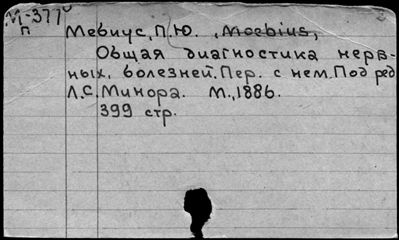 М-377
П
Мебиус, П.Ю. , Moebius,
Общая диагностика нерв-
ных, болезней. Пер. с нем. Под ред
Л.С. Минора. М., 1886.
399 стр.